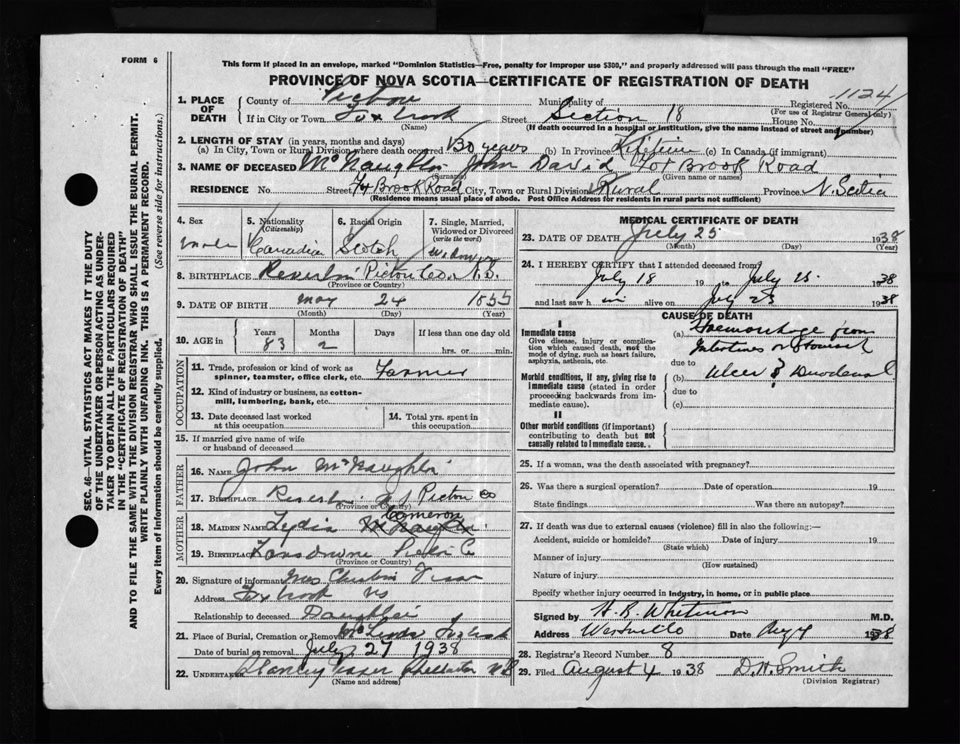 FORM 6
This form if placed in an envelope, marked "Dominion Statistics—Free, penalty for improper use $300," and properly addressed will pass through the mail "FREE"
PROVINCE OF NOVA SCOTIA—CERTIFICATE OF REGISTRATION OF DEATH
1. PLACE OF DEATH { County of Pictou Municipality of Registered No. 1124
(For use of Registrar General only)
If in City or Town Street Section 18 House No.
(Name) (If death occurred in a hospital or institution, give the name instead of street and number)
2. LENGTH OF STAY (in years, months and days)
(a) In City, Town or Rural Division where death occurred 30 years (b) In Province Lifetime (c) In Canada (if immigrant)
3. NAME OF DECEASED McNaughton John David Brook Road
(Surname) (Given name or names)
RESIDENCE No. Street Brook Road City, Town or Rural Division Rural Province N. Scotia
(Residence means usual place of abode. Post Office Address for residents in rural parts not sufficient)
4. Sex Male
5. Nationality (Citizenship) Canadian
6. Racial Origin Scotch
7. Single, Married, Widowed or Divorced (write the word)
8. BIRTHPLACE Pictou Co. N.S.
(Province or Country)
9. DATE OF BIRTH May 24 1855
(Month) (Day) (Year)
10. AGE in Years 83 Months 2 Days If less than one day old hrs. or min.
OCCUPATION
11. Trade, profession or kind of work as spinner, teamster, office clerk, etc. Farmer
12. Kind of industry or business, as cotton-mill, lumbering, bank, etc.
13. Date deceased last worked at this occupation
14. Total yrs. spent in this occupation
15. If married give name of wife or husband of deceased
FATHER
16. NAME John McNaughton
17. BIRTHPLACE Pictou Co
(Province or Country)
MOTHER
18. MAIDEN NAME Lydia Cameron
19. BIRTHPLACE Lansdowne Pictou Co
(Province or Country)
20. Signature of informant Mrs
Address Fox Brook NS
Relationship to deceased Daughter
21. Place of Burial, Cremation or Removal
Date of burial or removal July 27 1938
22. UNDERTAKER
(Name and address)
MEDICAL CERTIFICATE OF DEATH
23. DATE OF DEATH July 25 1938
(Month) (Day) (Year)
24. I HEREBY CERTIFY that I attended deceased from
July 18 19 to July 25 1938
and last saw him alive on July 25 1938
CAUSE OF DEATH
I
Immediate cause
Give disease, injury or complication which caused death, not the mode of dying, such as heart failure, asphyxia, asthenia, etc.
(a) Haemorrhage from
Intestines or Stomach
due to
Morbid conditions, if any, giving rise to immediate cause (stated in order proceeding backwards from immediate cause).
(b) Ulcer Duodenal
due to
(c)
II
Other morbid conditions (if important) contributing to death but not causally related to immediate cause.
25. If a woman, was the death associated with pregnancy?
26. Was there a surgical operation? Date of operation 19
State findings Was there an autopsy?
27. If death was due to external causes (violence) fill in also the following:—
Accident, suicide or homicide? Date of injury 19
(State which)
Manner of injury
(How sustained)
Nature of injury
Specify whether injury occurred in Industry, in home, or in public place
Signed by M.D.
Address Westville Date Aug 4 1938
28. Registrar's Record Number 8
29. Filed August 4 1938 D. H. Smith
(Division Registrar)
SEC. 46—VITAL STATISTICS ACT MAKES IT THE DUTY
OF THE UNDERTAKER OR PERSON ACTING AS UNDER-
TAKER TO OBTAIN ALL THE PARTICULARS REQUIRED
IN THE "CERTIFICATE OF REGISTRATION OF DEATH"
AND TO FILE THE SAME WITH THE DIVISION REGISTRAR WHO SHALL ISSUE THE BURIAL PERMIT.
WRITE PLAINLY WITH UNFADING INK. THIS IS A PERMANENT RECORD.
Every item of information should be carefully supplied. (See reverse side for instructions.)